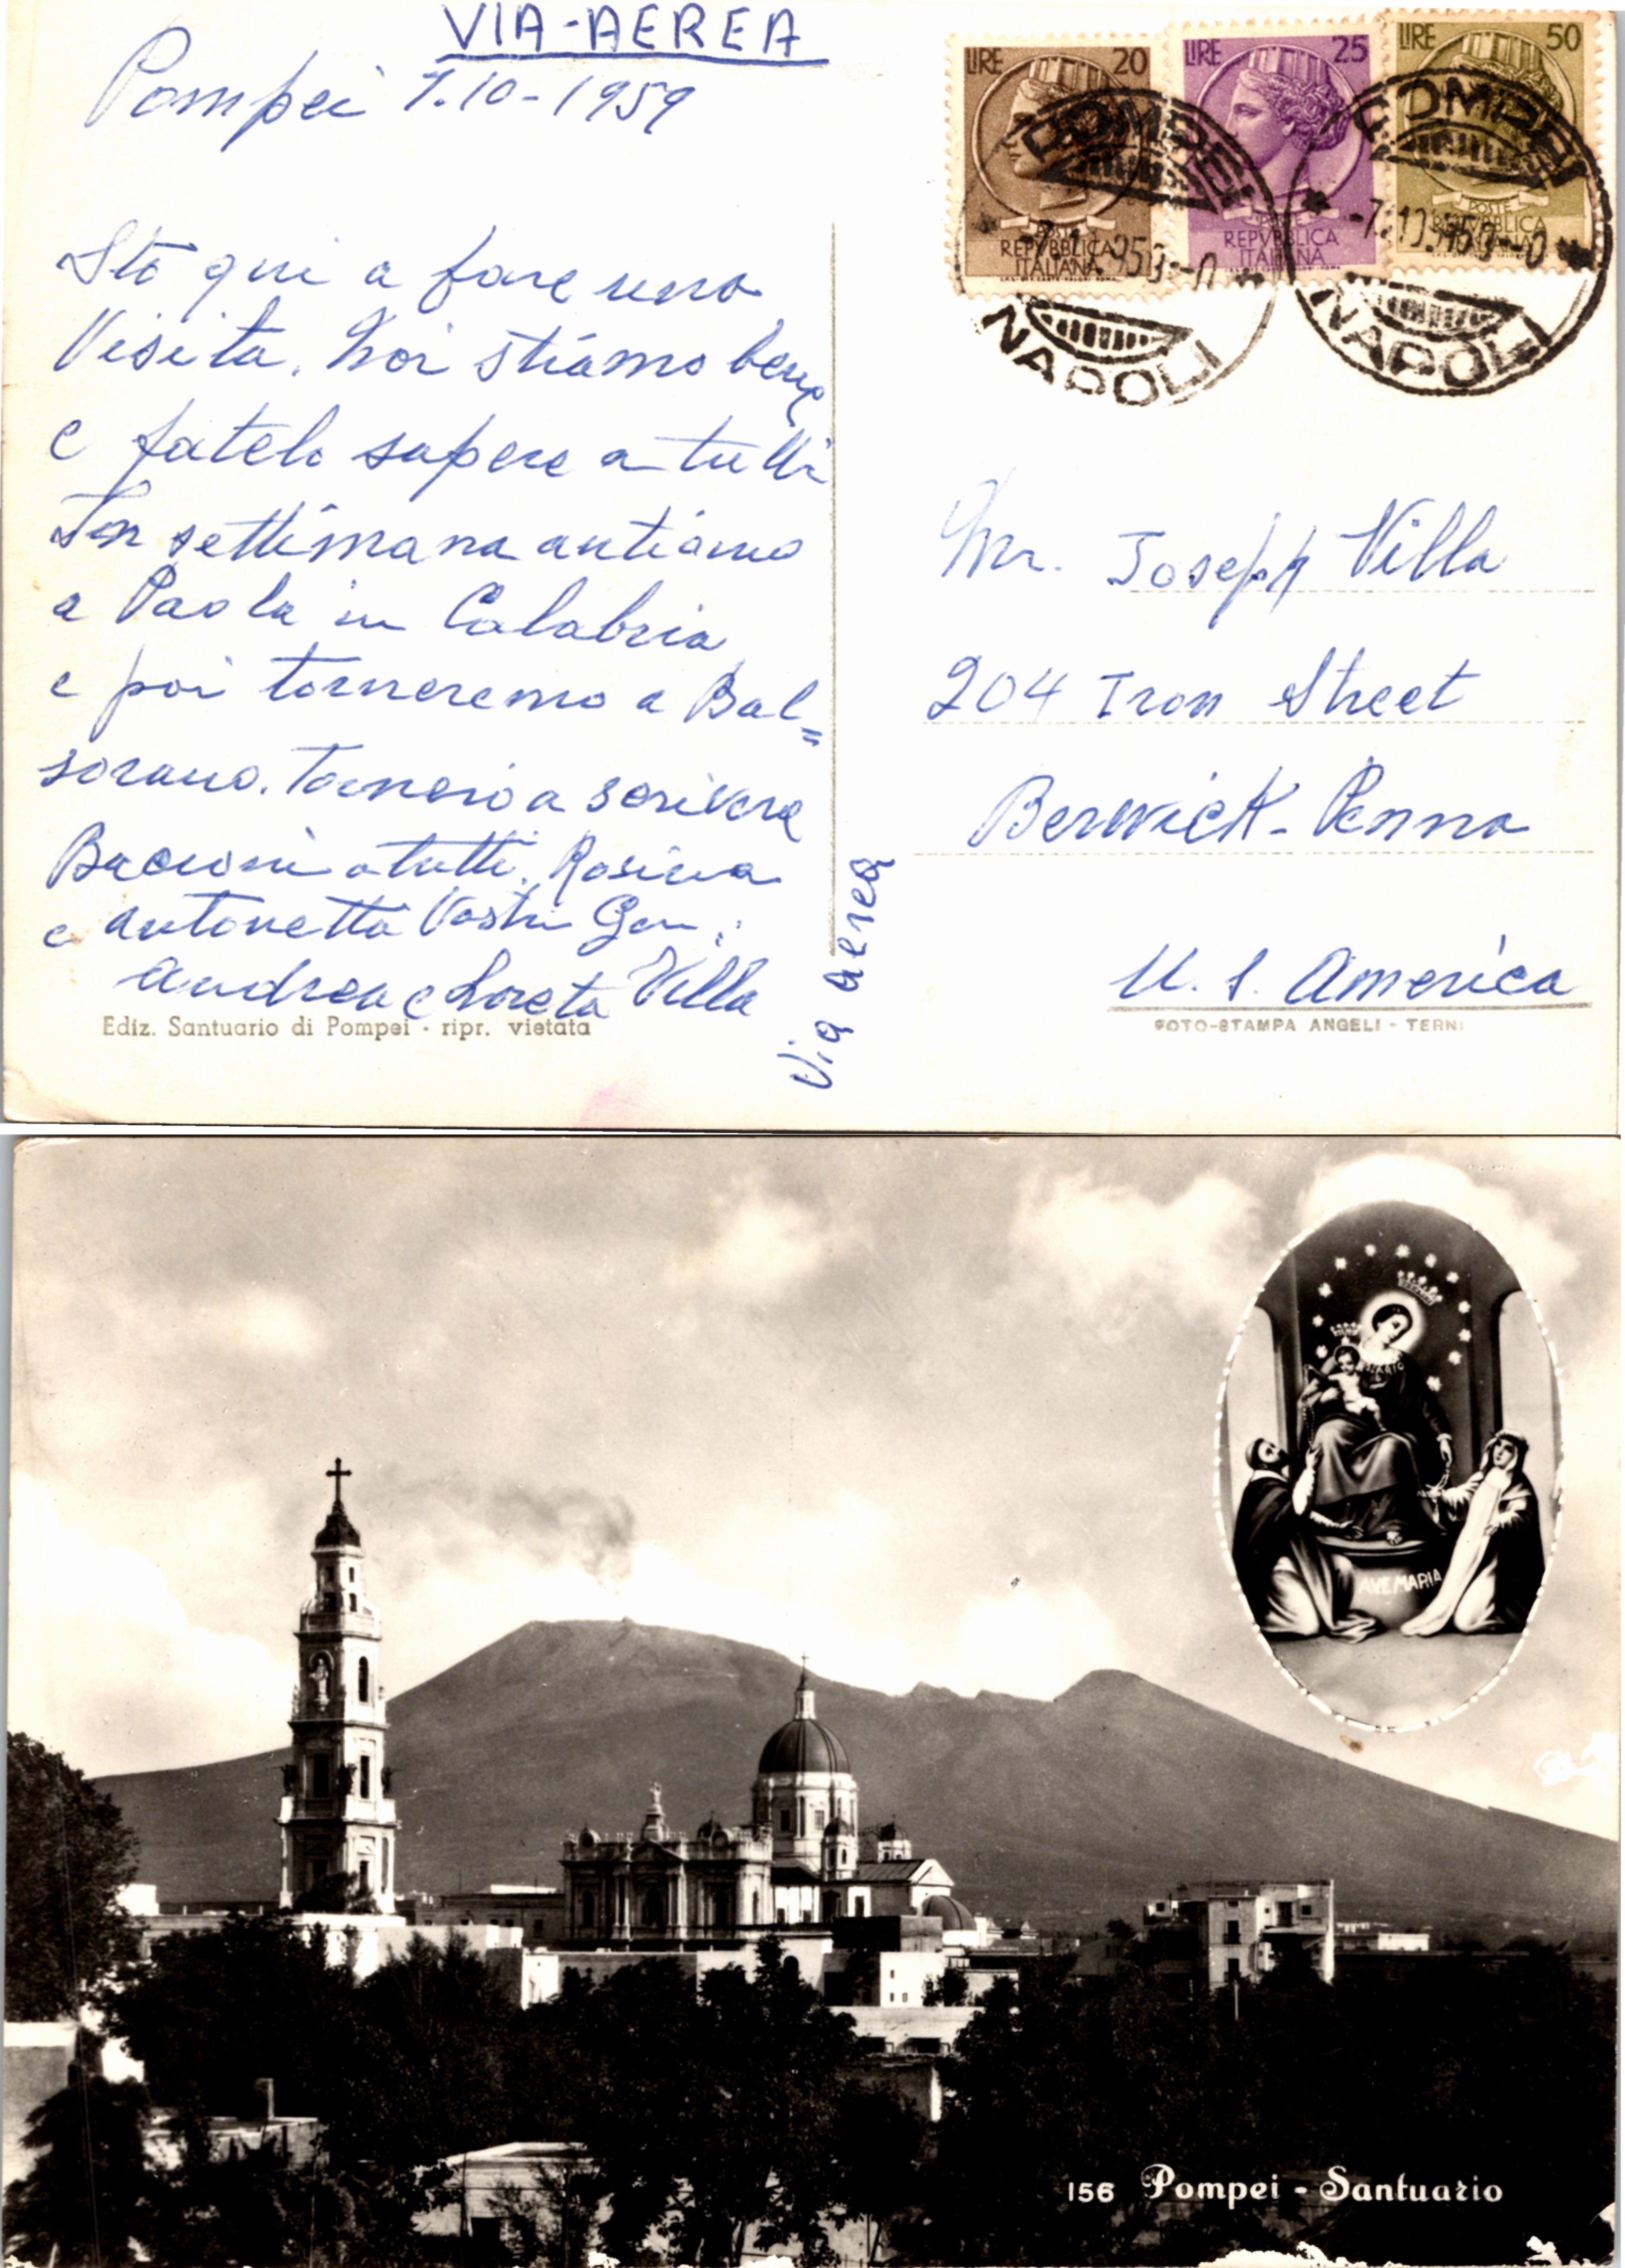 VIA-AEREA
Pompei 7.10-1959
LIRE 20
LIRE 25
LIRE 50
POSTE
REPVBBLICA
ITALIANA
POSTE
REPVBBLICA
ITALIANA
POSTE
REPVBBLICA
ITALIANA
POMPEI
NAPOLI
POMPEI
NAPOLI
Sto qui a fare una
Visita. Noi stiamo bene
e fatelo sapere a tutti
In settimana antiamo
a Paola in Calabria
e poi torneremo a Bal=
sorano. Tornerò a scrivere
Bacioni a tutti. Rosina
e Antonetta Vostri Gen.:
Andrea e Loreta Villa
Ediz. Santuario di Pompei - ripr. vietata
Via aerea
Mr. Joseph Villa
204 Iron Street
Berwick - Penna
U. S. America
FOTO-STAMPA ANGELI - TERNI
AVE MARIA
156 Pompei - Santuario